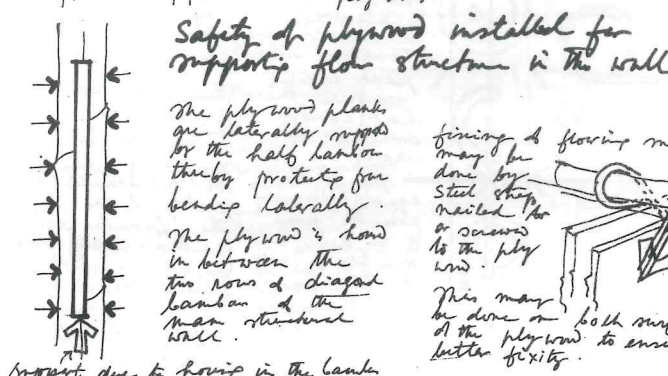 Safety of plywood installed for
supporting floor structure in the wall
The plywood planks
are laterally supports
by the half bamboo
thereby protecting from
bending laterally.
The plywood is housed
in between the
two rows of diagonal
bamboos of the
main structural
wall.
fixing of flooring
may be
done by
steel strap
nailed
or screwed
to the ply
wood.
This may
be done on both
of the plywood to
better fixity.
support due to housing in the bamboo